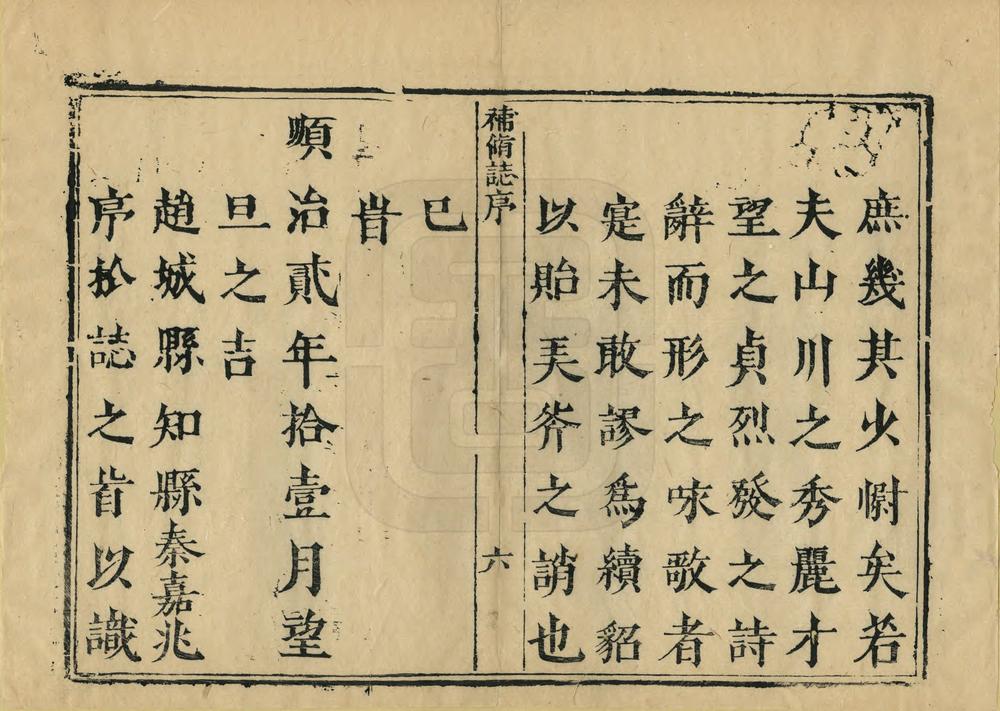 庶幾其少慰矣若
夫山川之秀麗才
望之貞烈發之詩
辭而形之咏歌者
寔未敢謬爲續貂
以貽弄斧之誚也
補脩誌序
六
已
旹
順治貳年拾壹月望
旦之吉
趙城縣知縣秦嘉兆
序於誌之旹以識